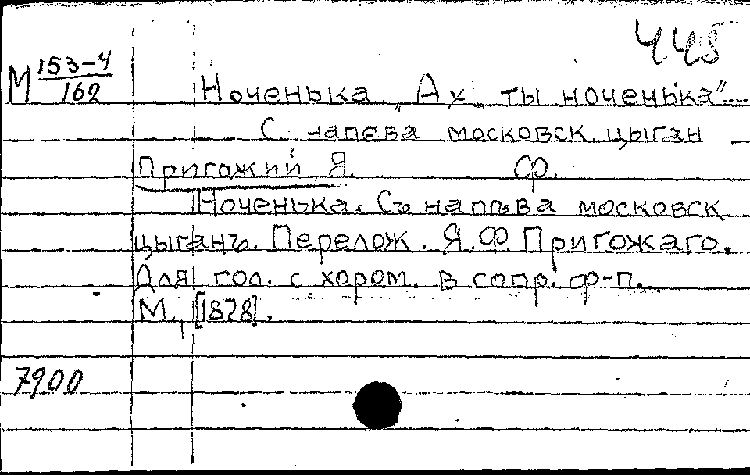 445
М 153-4/162
Ноченька „Ах ты ноченька"...
С напева московск. цыган
Пригожий Я. Ф.
Ноченька. Съ напѣва московск
цыганъ. Перелож. Я.Ф. Пригожаго.
Для гол. с хором. в сопр. ф-п.
М., [1878].
7900